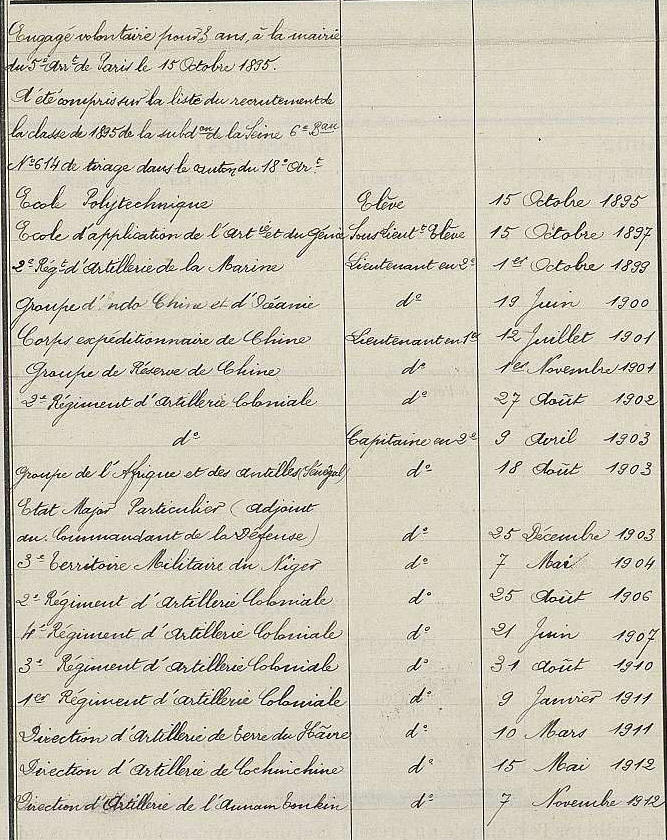 Engagé volontaire pour 3 ans, à la mairie
du 5e Arrt de Paris le 15 Octobre 1895.
A été compris sur la liste du recrutement de
la classe de 1895 de la subdon de la Seine 6e Bau
No 614 de tirage dans le canton du 18e Arrt.
Ecole Polytechnique Elève 15 Octobre 1895
Ecole d'application de l'Artie et du Génie Sous Lieutt Elève 15 Octobre 1897
2e Régt d'Artillerie de la Marine Lieutenant en 2e 1er Octobre 1899
Groupe d'Indo Chine et d'Océanie do 19 Juin 1900
Corps expéditionnaire de Chine Lieutenant en 1er 12 Juillet 1901
Groupe de Réserve de Chine do 1er Novembre 1901
2e Régiment d'Artillerie Coloniale do 27 Août 1902
do Capitaine en 2e 9 Avril 1903
Groupe de l'Afrique et des Antilles (Sénégal) do 18 Août 1903
Etat Major Particulier (adjoint
au Commandant de la Défense) do 25 Décembre 1903
3e Territoire Militaire du Niger do 7 Mai 1904
2e Régiment d'Artillerie Coloniale do 25 Août 1906
4e Régiment d'Artillerie Coloniale do 21 Juin 1907
3e Régiment d'Artillerie Coloniale do 31 Août 1910
1er Régiment d'Artillerie Coloniale do 9 Janvier 1911
Direction d'Artillerie de Terre du Hâvre do 10 Mars 1911
Direction d'Artillerie de Cochinchine do 15 Mai 1912
Direction d'Artillerie de l'Annam Tonkin do 7 Novembre 1912